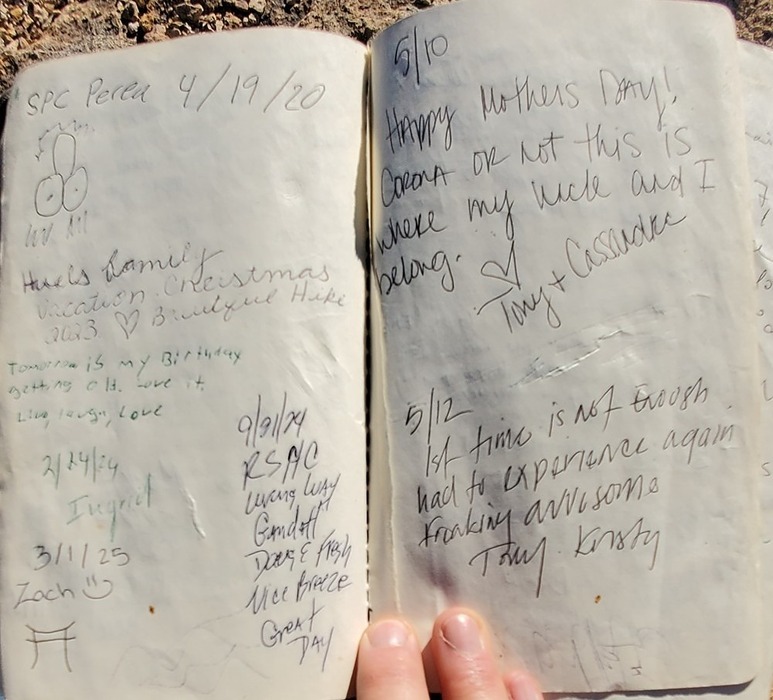 SPC Perea 4/19/20
Huels family
vacation Christmas
2023 Hike
Tomorrow is my Birthday
getting old. Love it.
Live, laugh, Love
2/24/24
Ingrid
3/1/25
Zach
9/21/24
RSAC
Living Way
Gandolf
Doug E Fresh
Nice Breeze
Great
DAY
5/10
HAPPY Mothers DAY!
CORONA OR Not this is
where my Uncle and I
belong.
Tony + Cassandra
5/12
1st time is not Enough
had to experience again
freaking awesome
Tony